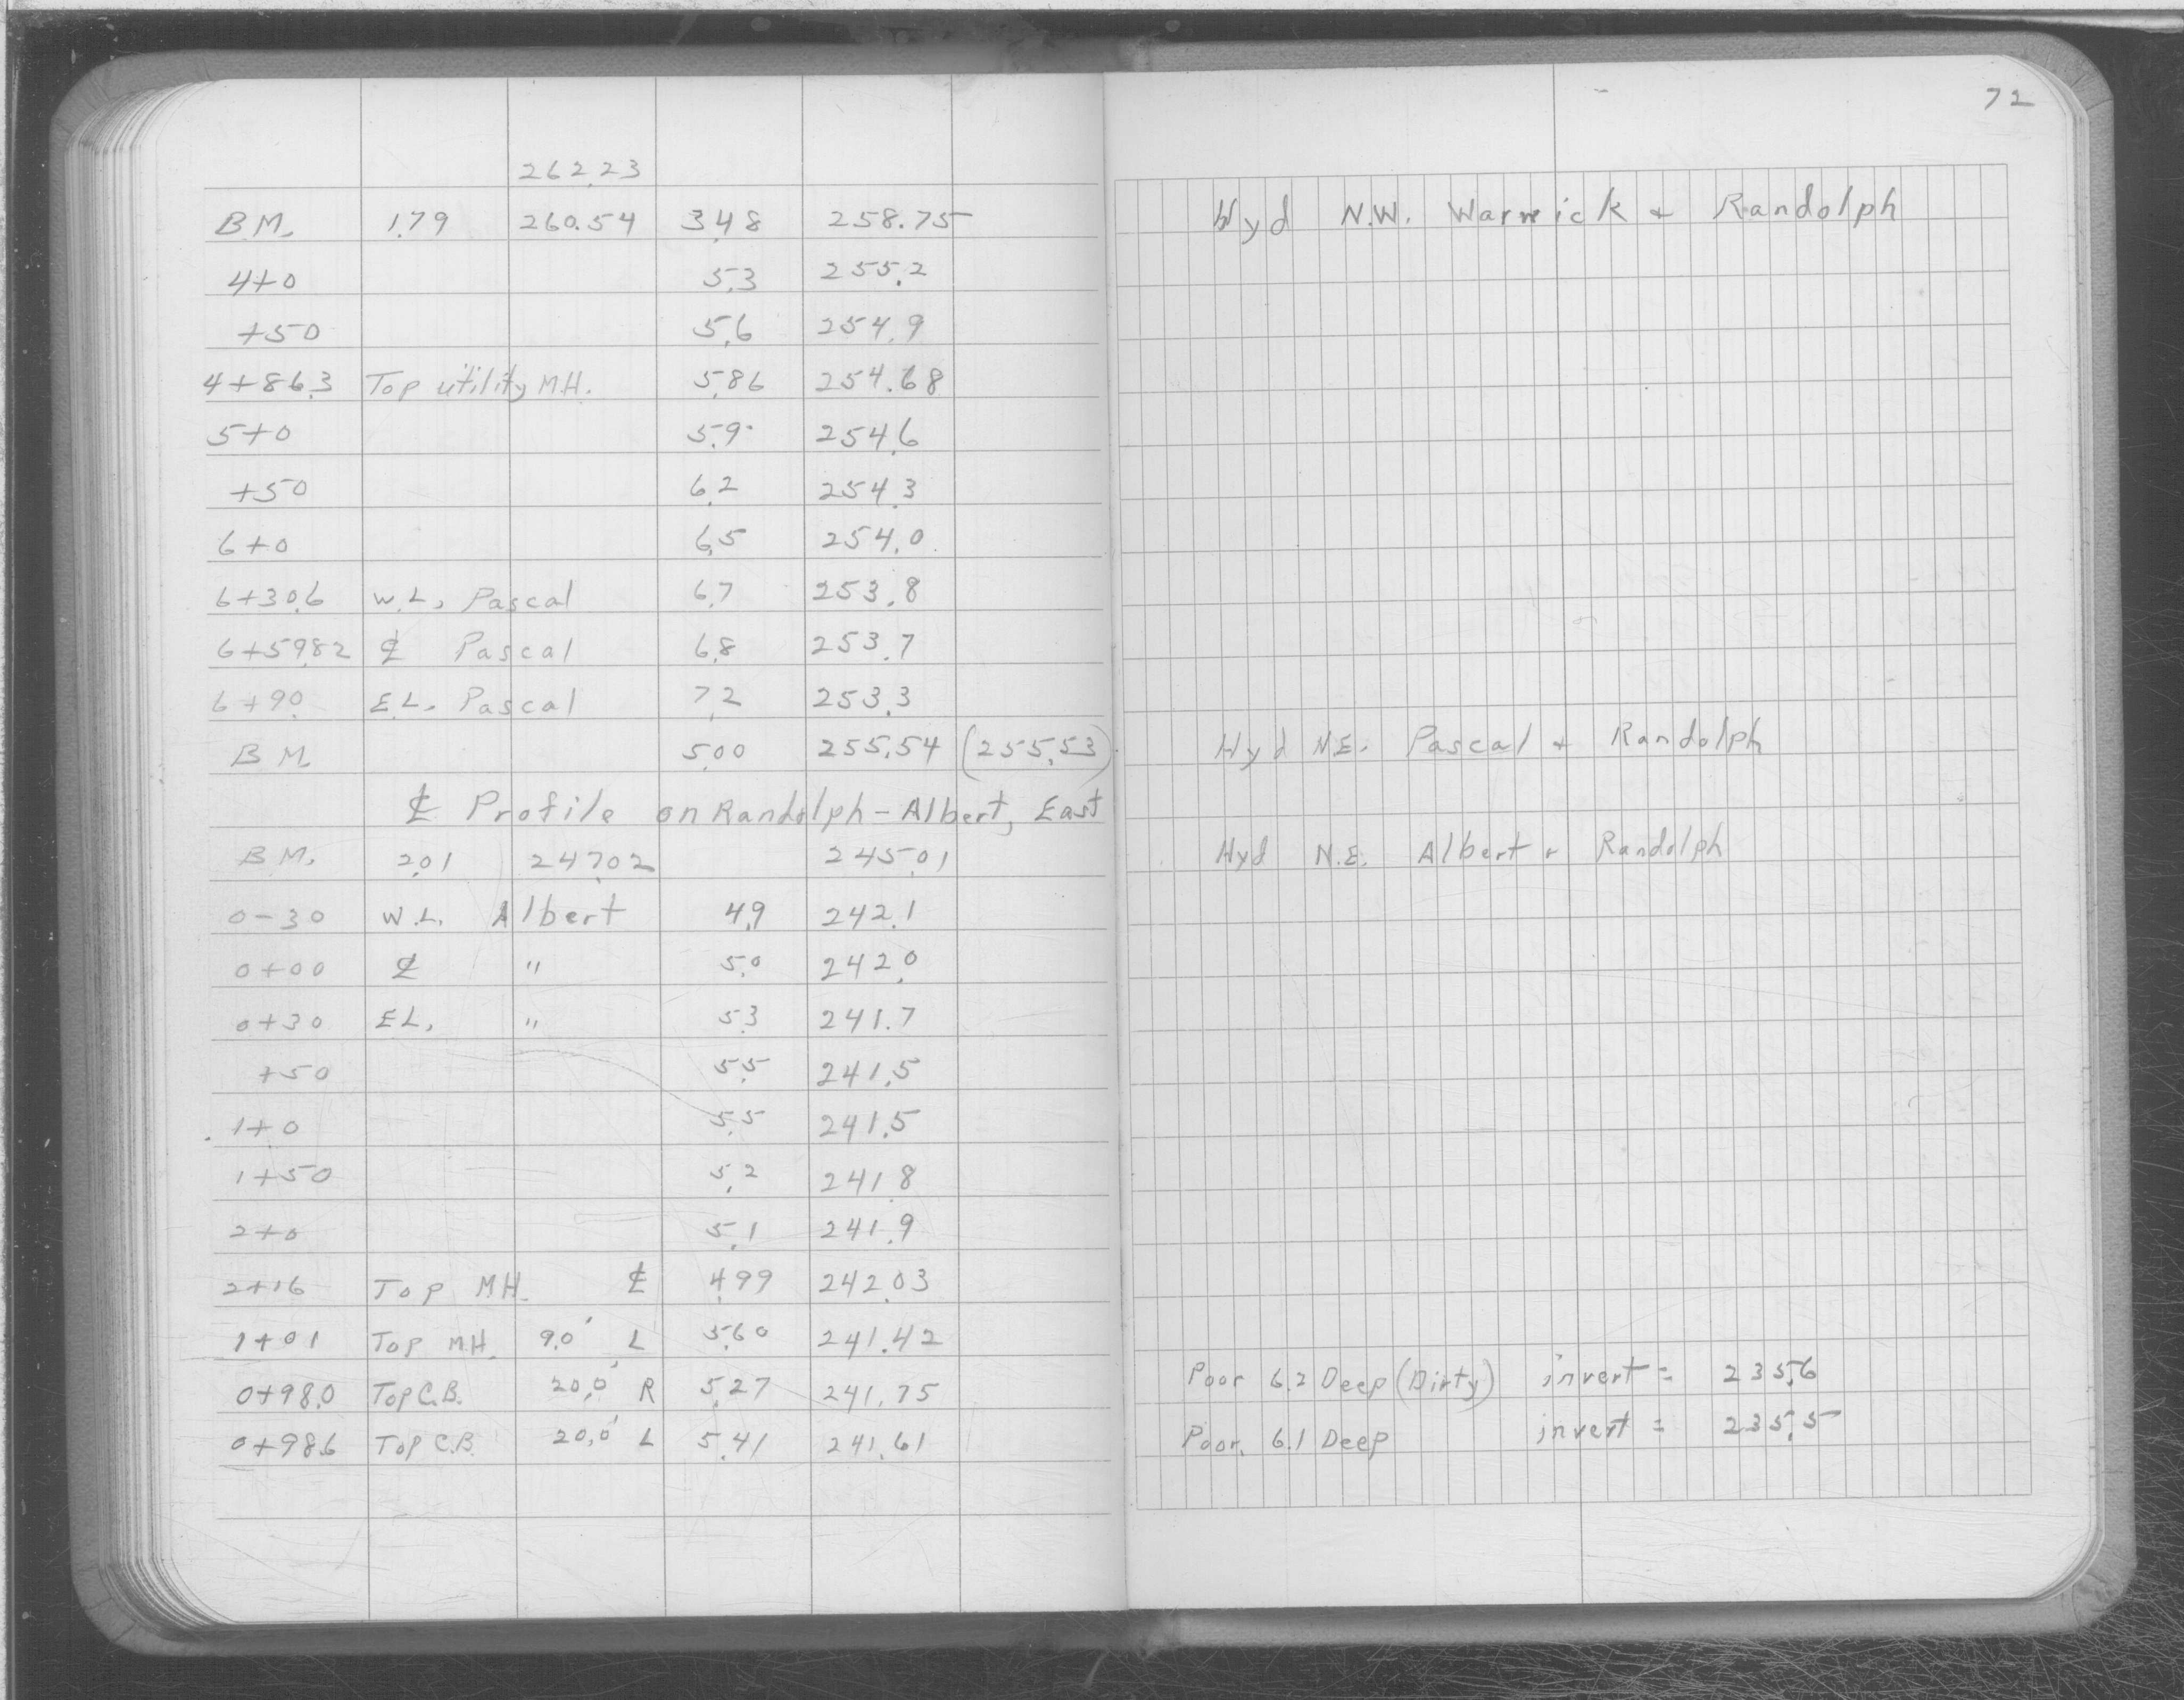 72
262.23
B.M. 1.79 260.54 3.48 258.75 Hyd N.W. Warwick + Randolph
4+0 5.3 255.2
+50 5.6 254.9
4+86.3 Top utility M.H. 5.86 254.68
5+0 5.9 254.6
+50 6.2 254.3
6+0 6.5 254.0
6+30.6 W.L. Pascal 6.7 253.8
6+59.82 ℄ Pascal 6.8 253.7
6+90. E.L. Pascal 7.2 253.3
B.M. 5.00 255.54 (255.53) Hyd N.E. Pascal + Randolph
℄ Profile on Randolph - Albert, East
B.M. 2.01 247.02 245.01 Hyd N.E. Albert + Randolph
0-30 W.L. Albert 4.9 242.1
0+00 ℄ " 5.0 242.0
0+30 E.L. " 5.3 241.7
+50 5.5 241.5
1+0 5.5 241.5
1+50 5.2 241.8
2+0 5.1 241.9
2+16 Top M.H. ℄ 4.99 242.03
1+01 Top M.H. 9.0' L 5.60 241.42
0+98.0 Top C.B. 20.0' R 5.27 241.75 Poor 6.2 Deep (Dirty) invert = 235.6
0+98.6 Top C.B. 20.0' L 5.41 241.61 Poor. 6.1 Deep invert = 235.5